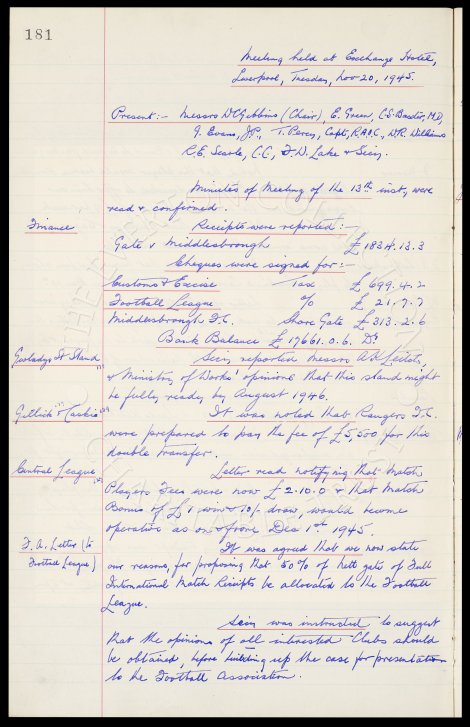 181
Meeting held at Exchange Hotel,
Liverpool, Tuesday, Nov 20, 1945.
Present:- Messrs W C Gibbins (Chair), E. Green, C.S. Baxter, M.D,
J. Evans, J.P., T. Percy, Capt, R.A.O.C., W.R. Williams
R.E. Searle, C.C, F.W. Lake & Secy.
Minutes of Meeting of the 13th inst, were
read & confirmed.
Finance Receipts were reported:-
Gate v Middlesbrough £1834.13.3
Cheques were signed for:-
Customs & Excise Tax £699.4.2
Football League % £21.7.7
Middlesbrough F.C. Share Gate £313.2.6
Bank Balance £17661.0.6. Dr
Goodison Rd Stand Secy reported Messrs A. Leitch,
& Ministry of Works' opinions that this stand might
be fully ready by August 1946.
Gillick & Caskie It was noted that Rangers F.C.
were prepared to pay the fee of £5,500 for this
double transfer.
Central League Letter read notifying that Match
Players Fees were now £2.10.0 & that Match
Bonus of £1 win & 10/- draw, would become
operative as on & from Dec 1st 1945.
F.A. Letter (to It was agreed that we now state
Football League) our reasons, for proposing that 50% of nett gate of Full
International Match Receipts be allocated to the Football
League.
Secy was instructed to suggest
that the opinions of all interested Clubs should
be obtained, before building up the case for presentation
to the Football Association.